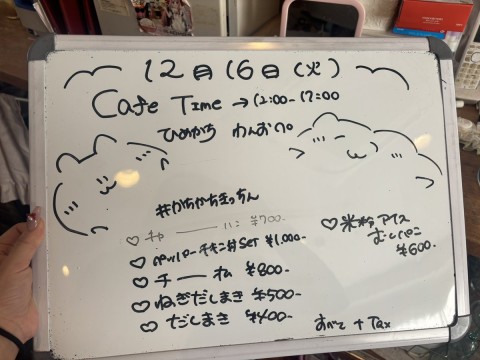 12月16日(火)
Cafe Time → 12:00-17:00
ひめがち わんおぺ
#がちがちきっちん
♡ チャーハン ¥700-
♡ ペッパーチキン丼SET ¥1,000-
♡ チーオム ¥800-
♡ ねぎだしまき ¥500-
♡ だしまき ¥400-
♡ 米粉アイス
むしパン
¥600-
すべて + Tax